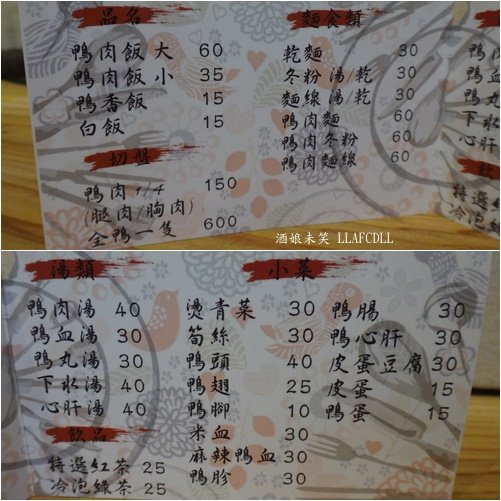 品名
鴨肉飯大 60
鴨肉飯小 35
鴨香飯 15
白飯 15
切盤
鴨肉1/4 150
(腿肉/胸肉)
全鴨一隻 600
麵食類
乾麵 30
冬粉湯/乾 30
麵線湯/乾 30
鴨肉麵 60
鴨肉冬粉 60
鴨肉麵線 60
鴨
鴨
鴨丸
下水
心肝
特選紅
冷泡綠
酒娘未笑 LLAFCDLL
湯類
鴨肉湯 40
鴨血湯 30
鴨丸湯 30
下水湯 40
心肝湯 40
飲品
特選紅茶 25
冷泡綠茶 25
小菜
燙青菜 30
筍絲 30
鴨頭 40
鴨翅 25
鴨腳 10
米血 30
麻辣鴨血 30
鴨胗 30
鴨腸 30
鴨心肝 30
皮蛋豆腐 30
皮蛋 15
鴨蛋 15